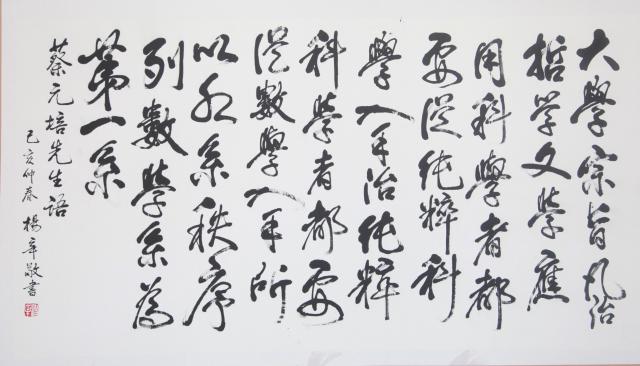 大學宗旨凡治
哲学文學應
用科學者都
要從純粹科
學入手治純粹
科學者都要
從數學入手所
以系秩序
列數學系為
第一系
蔡元培先生語
己亥仲春 楊辛敬書